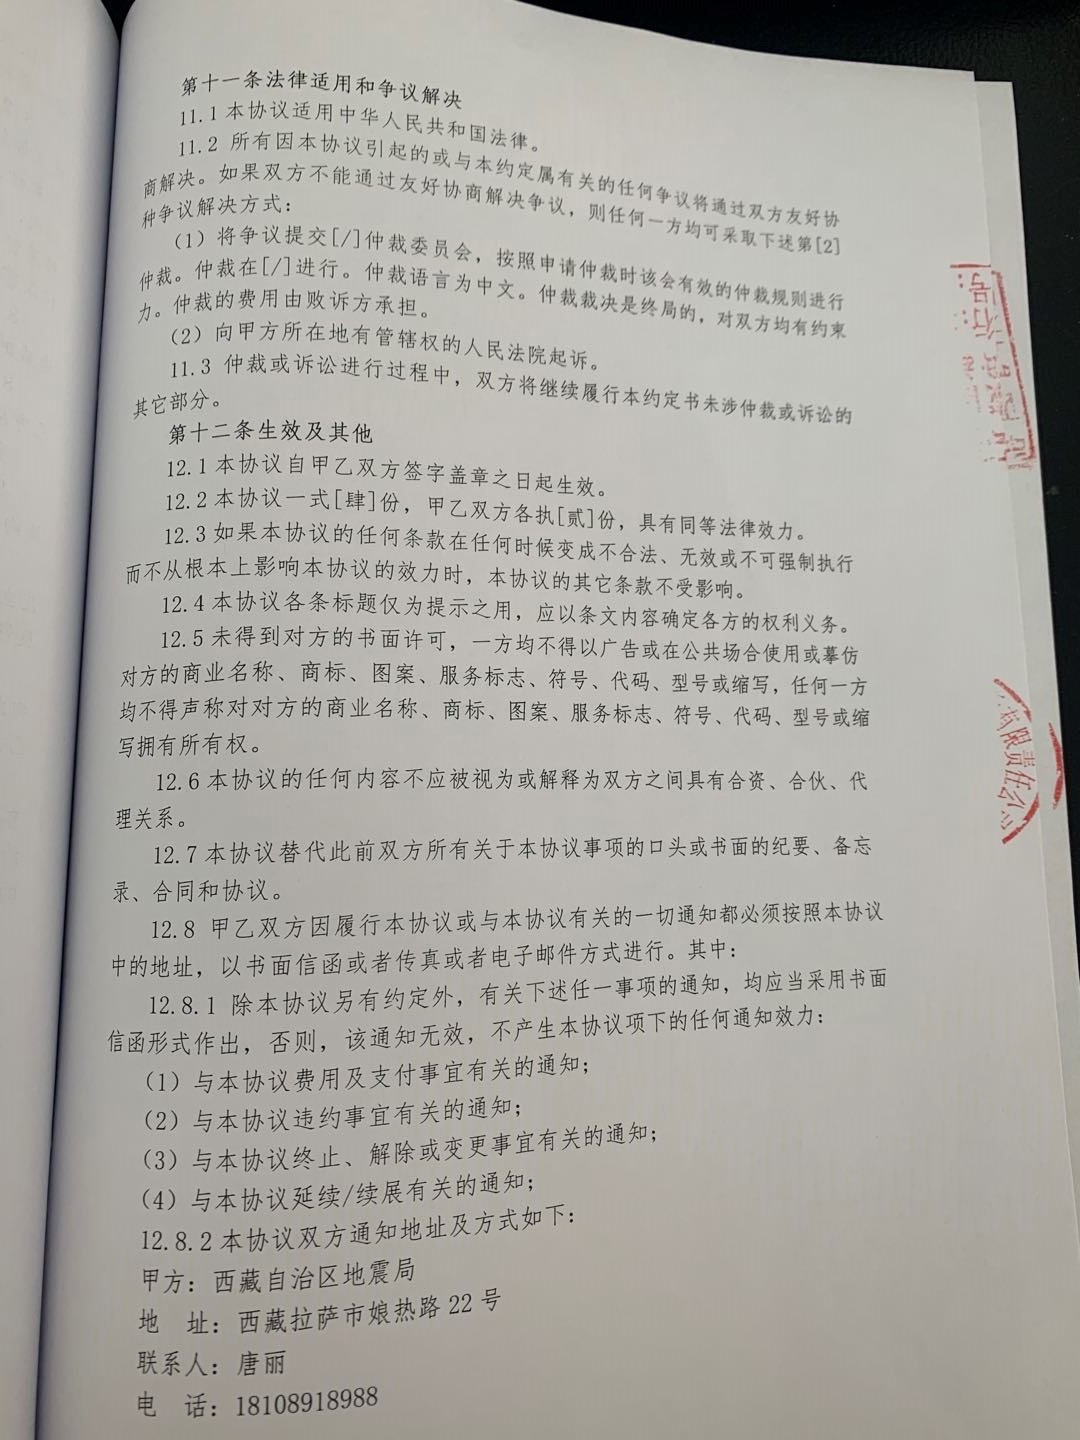 第十一条法律适用和争议解决
11.1本协议适用中华人民共和国法律。
11.2 所有因本协议引起的或与本约定属有关的任何争议将通过双方友好协
商解决。如果双方不能通过友好协商解决争议，则任何一方均可采取下述第[2]
种争议解决方式：
（1）将争议提交[/]仲裁委员会，按照申请仲裁时该会有效的仲裁规则进行
仲裁。仲裁在[/]进行。仲裁语言为中文。仲裁裁决是终局的，对双方均有约束
力。仲裁的费用由败诉方承担。
（2）向甲方所在地有管辖权的人民法院起诉。
11.3 仲裁或诉讼进行过程中，双方将继续履行本约定书未涉仲裁或诉讼的
其它部分。
第十二条生效及其他
12.1本协议自甲乙双方签字盖章之日起生效。
12.2本协议一式[肆]份，甲乙双方各执[贰]份，具有同等法律效力。
12.3如果本协议的任何条款在任何时候变成不合法、无效或不可强制执行
而不从根本上影响本协议的效力时，本协议的其它条款不受影响。
12.4本协议各条标题仅为提示之用，应以条文内容确定各方的权利义务。
12.5未得到对方的书面许可，一方均不得以广告或在公共场合使用或摹仿
对方的商业名称、商标、图案、服务标志、符号、代码、型号或缩写，任何一方
均不得声称对对方的商业名称、商标、图案、服务标志、符号、代码、型号或缩
写拥有所有权。
12.6本协议的任何内容不应被视为或解释为双方之间具有合资、合伙、代
理关系。
12.7本协议替代此前双方所有关于本协议事项的口头或书面的纪要、备忘
录、合同和协议。
12.8 甲乙双方因履行本协议或与本协议有关的一切通知都必须按照本协议
中的地址，以书面信函或者传真或者电子邮件方式进行。其中：
12.8.1 除本协议另有约定外，有关下述任一事项的通知，均应当采用书面
信函形式作出，否则，该通知无效，不产生本协议项下的任何通知效力：
（1）与本协议费用及支付事宜有关的通知；
（2）与本协议违约事宜有关的通知；
（3）与本协议终止、解除或变更事宜有关的通知；
（4）与本协议延续/续展有关的通知；
12.8.2本协议双方通知地址及方式如下：
甲方：西藏自治区地震局
地　址：西藏拉萨市娘热路22号
联系人：唐丽
电　话：18108918988
有限责任公